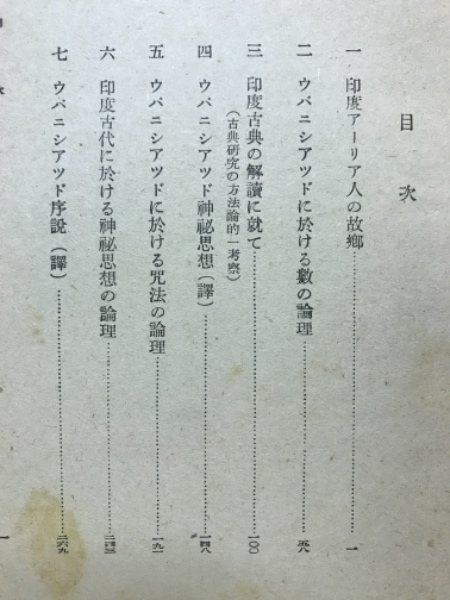 目次
一 印度アーリア人の故鄕……一
二 ウパニシアツドに於ける數の論理……五八
三 印度古典の解讀に就て……一〇〇
(古典硏究の方法論的一考察)
四 ウパニシアツド神祕思想(譯)……一四八
五 ウパニシアツドに於ける咒法の論理……一九一
六 印度古代に於ける神祕思想の論理……二四三
七 ウパニシアツド序說(譯)……二六九
一